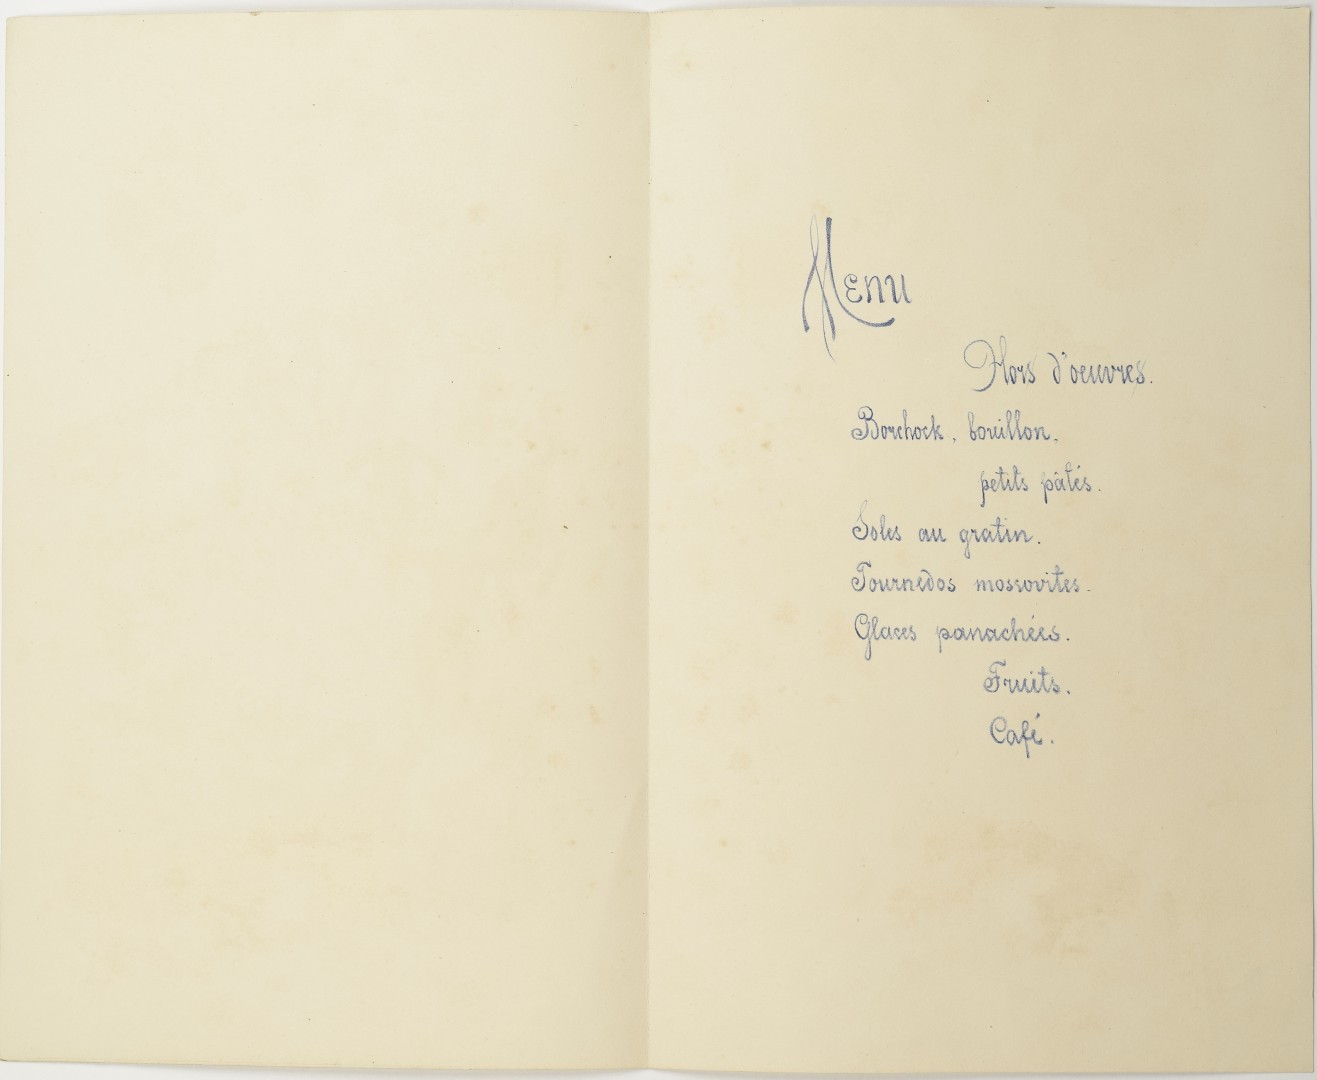 Menu
Hors d'oeuvres.
Borchock, bouillon.
petits pâtés.
Soles au gratin.
Tournedos mossovites.
Glaces panachées.
Fruits.
Café.